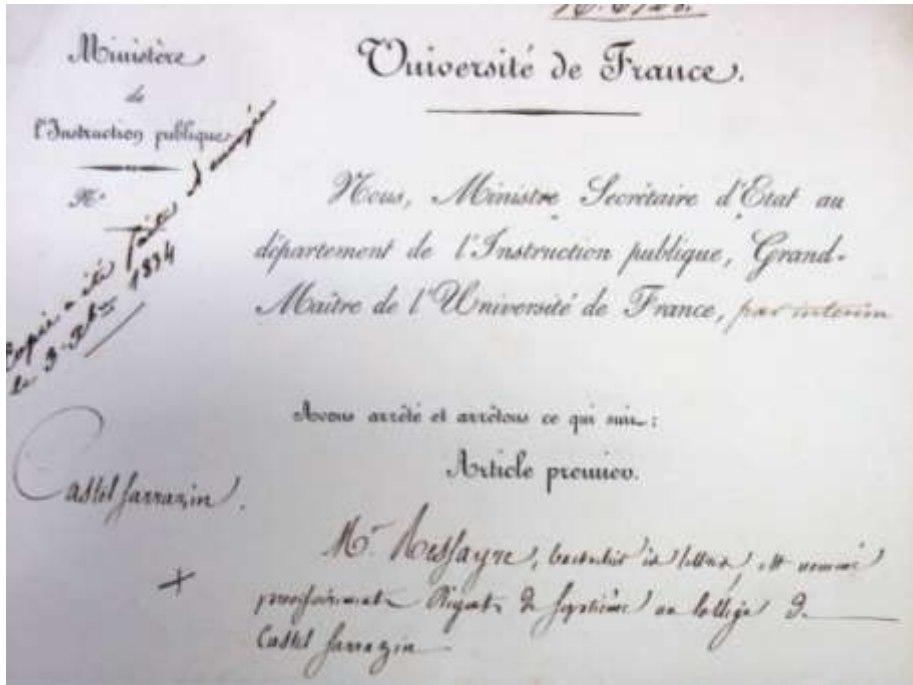 Ministère
de
l'Instruction publique
N°
Copie a été faite & envoyée
le 3 Xbre 1834
Castel Sarrazin.
Université de France.
Nous, Ministre Secrétaire d'Etat au
département de l'Instruction publique, Grand-
Maître de l'Université de France, par interim
Avons arrêté et arrêtons ce qui suit :
Article premier.
Mr , bachelier ès lettres, est nommé
provisoirement Régent de septième au Collège de
Castel Sarrazin